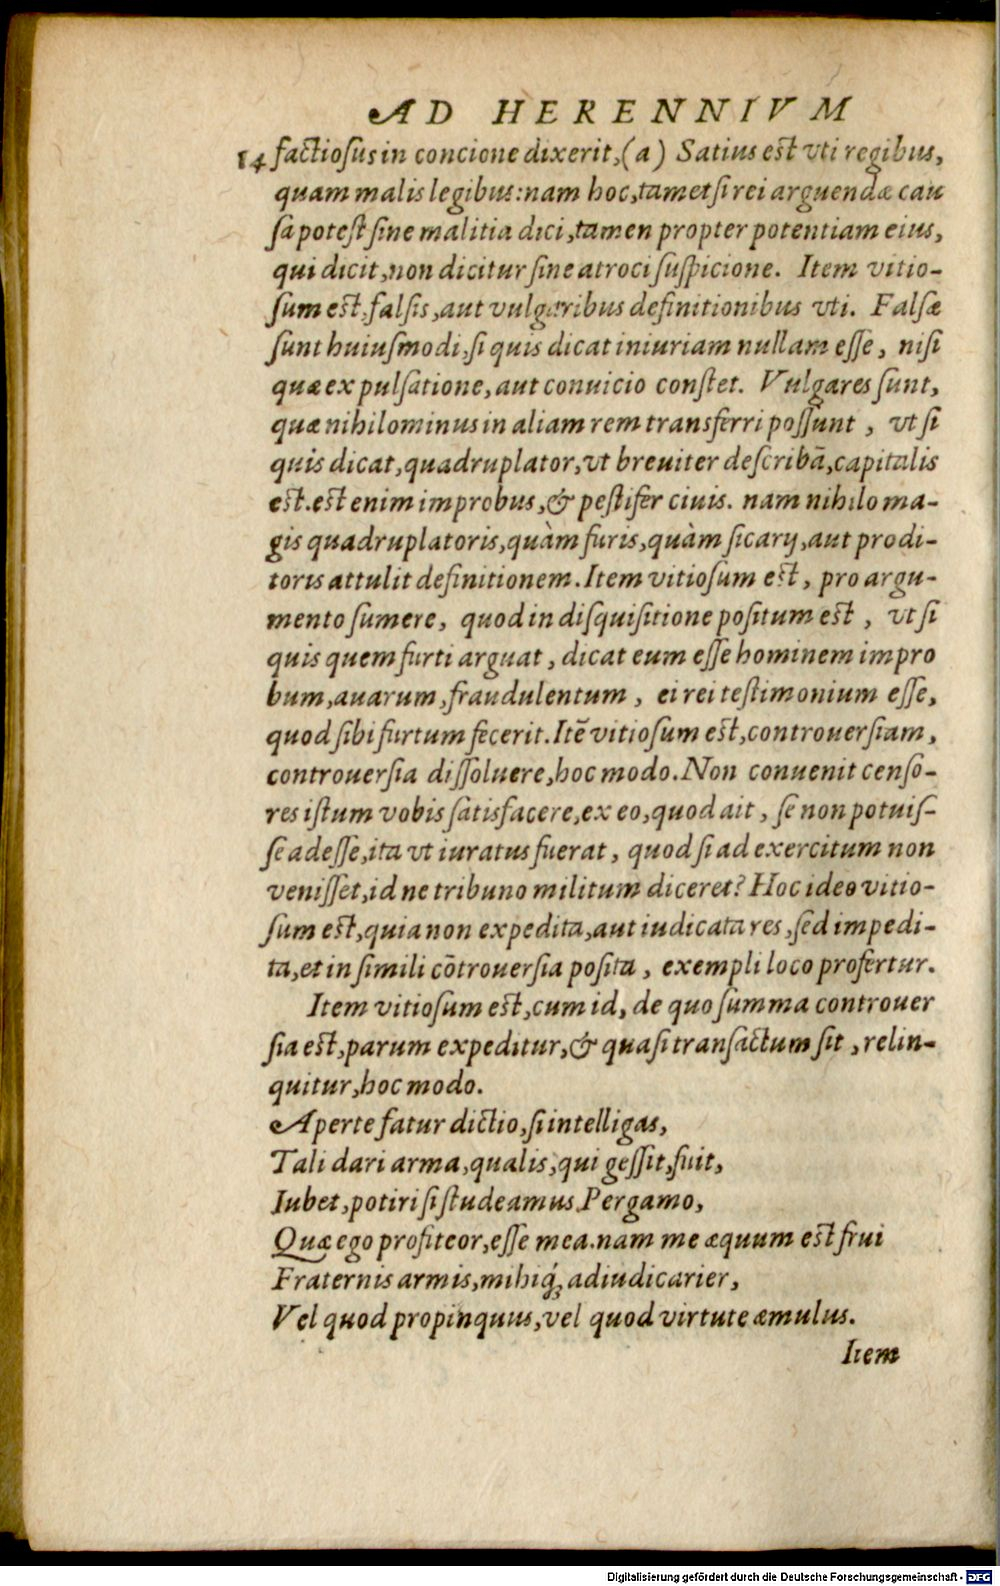 AD HERENNIVM
14 factiosus in concione dixerit, (a) Satius est vti regibus,
quam malis legibus: nam hoc, tametsi rei arguendæ cau
sa potest sine malitia dici, tamen propter potentiam eius,
qui dicit, non dicitur sine atroci suspicione. Item vitio-
sum est, falsis, aut vulgaribus definitionibus vti. Falsæ
sunt huiusmodi, si quis dicat iniuriam nullam esse, nisi
quæ ex pulsatione, aut conuicio constet. Vulgares sunt,
quæ nihilominus in aliam rem transferri possunt, vt si
quis dicat, quadruplator, vt breuiter describā, capitalis
est. est enim improbus, & pestifer ciuis. nam nihilo ma-
gis quadruplatoris, quàm furis, quàm sicarij, aut prodi-
toris attulit definitionem. Item vitiosum est, pro argu-
mento sumere, quod in disquisitione positum est, vt si
quis quem furti arguat, dicat eum esse hominem impro
bum, auarum, fraudulentum, ei rei testimonium esse,
quod sibi furtum fecerit. Itē vitiosum est, controuersiam,
controuersia dissoluere, hoc modo. Non conuenit censo-
res istum vobis satisfacere, ex eo, quod ait, se non potuis-
se adesse, ita vt iuratus fuerat, quod si ad exercitum non
venisset, id ne tribuno militum diceret? Hoc ideo vitio-
sum est, quia non expedita, aut iudicata res, sed impedi-
ta, et in simili cōtrouersia posita, exempli loco profertur.
Item vitiosum est, cum id, de quo summa controuer
sia est, parum expeditur, & quasi transactum sit, relin-
quitur, hoc modo.
Aperte fatur dictio, si intelligas,
Tali dari arma, qualis, qui gessit, fuit,
Iubet, potiri si studeamus Pergamo,
Quæ ego profiteor, esse mea. nam me æquum est frui
Fraternis armis, mihiq́; adiudicarier,
Vel quod propinquus, vel quod virtute æmulus.
Item
Digitalisierung gefördert durch die Deutsche Forschungsgemeinschaft - DFG